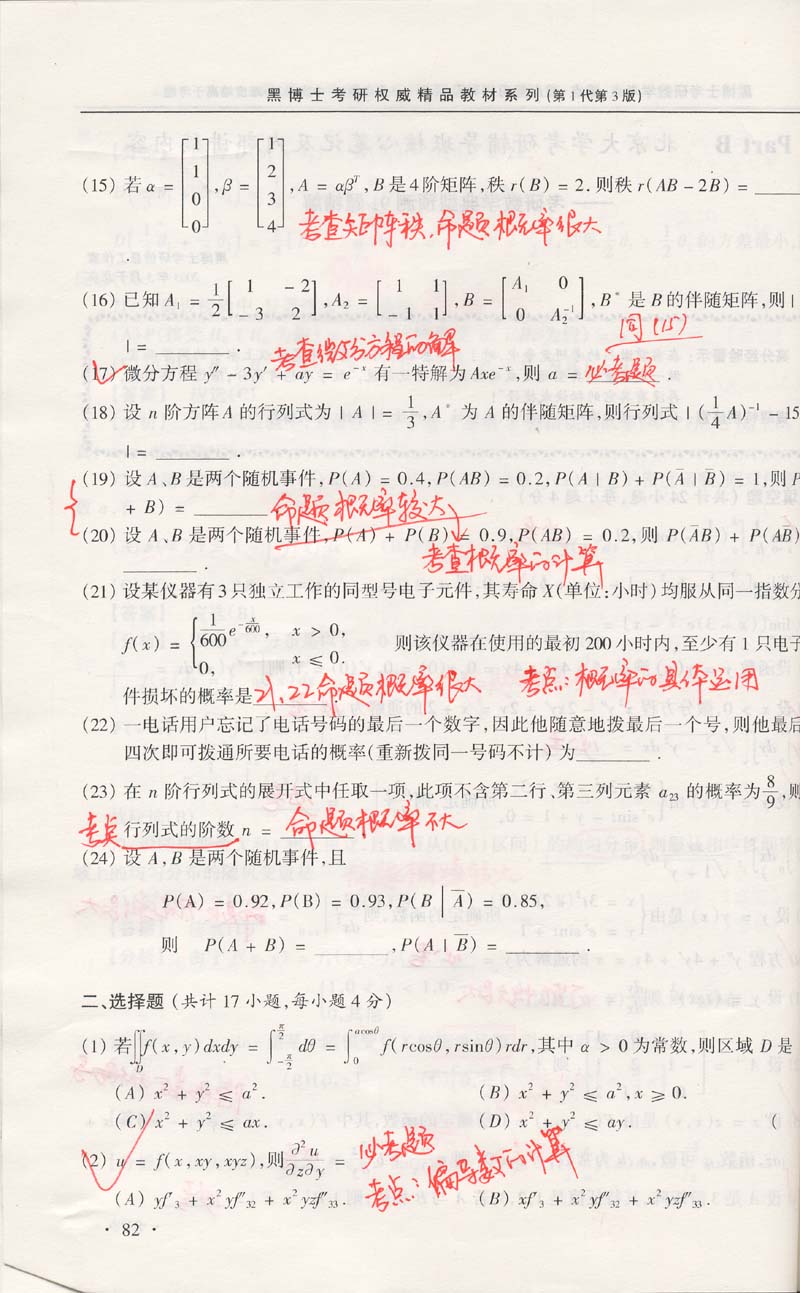 黑博士考研权威精品教材系列(第1代第3版)
(15) 若 α = [1 1 0 0], β = [1 2 3 4], A = αβᵀ, B 是 4 阶矩阵, 秩 r(B) = 2. 则秩 r(AB - 2B) = ____
考查矩阵秩,命题概率很大
(16) 已知 A₁ = 1/2 [1 -2; -3 2], A₂ = [1 1; -1 1], B = [A₁ 0; 0 A₂⁻¹], B* 是 B 的伴随矩阵, 则 |
| = ________ .
考查微分方程的解
同(15)
(17) 微分方程 y″ - 3y′ + ay = e⁻ˣ 有一特解为 Axe⁻ˣ, 则 a = ________ .
必考题
(18) 设 n 阶方阵 A 的行列式为 | A | = 1/3, A* 为 A 的伴随矩阵, 则行列式 | (1/4 A)⁻¹ - 15
| = ________ .
(19) 设 A、B 是两个随机事件, P(A) = 0.4, P(AB) = 0.2, P(A | B) + P(A̅ | B̅) = 1, 则 P
+ B) = ________
命题概率较大
(20) 设 A、B 是两个随机事件, P(A) + P(B) = 0.9, P(AB) = 0.2, 则 P(A̅B) + P(AB̅)
________ .
考查概率的计算
(21) 设某仪器有 3 只独立工作的同型号电子元件, 其寿命 X(单位:小时) 均服从同一指数分
f(x) = { 1/600 e^(-x/600), x > 0,
0, x ≤ 0.
则该仪器在使用的最初 200 小时内, 至少有 1 只电子
件损坏的概率是
21、22命题概率很大 考点:概率的具体运用
(22) 一电话用户忘记了电话号码的最后一个数字, 因此他随意地拨最后一个号, 则他最后
四次即可拨通所要电话的概率(重新拨同一号码不计) 为________ .
(23) 在 n 阶行列式的展开式中任取一项, 此项不含第二行、第三列元素 a₂₃ 的概率为 8/9, 则
考点 行列式的阶数 n = ________ 命题概率不大
(24) 设 A, B 是两个随机事件, 且
P(A) = 0.92, P(B) = 0.93, P(B | A̅) = 0.85,
则 P(A + B) = ________ , P(A | B̅) = ________ .
二、选择题 (共计 17 小题, 每小题 4 分)
(1) 若 ∬_D f(x, y)dxdy = ∫_{-π/2}^{π/2} dθ = ∫_0^{acosθ} f(rcosθ, rsinθ)rdr, 其中 α > 0 为常数, 则区域 D 是
(A) x² + y² ≤ a². (B) x² + y² ≤ a², x ≥ 0.
(C) x² + y² ≤ ax. (D) x² + y² ≤ ay. (
(2) u = f(x, xy, xyz), 则 ∂²u/∂z∂y =
必考题
考点:偏导数的计算
(A) yf′₃ + x²yf″₃₂ + x²yzf″₃₃. (B) xf′₃ + x²yf″₃₂ + x²yzf″₃₃.
· 82 ·